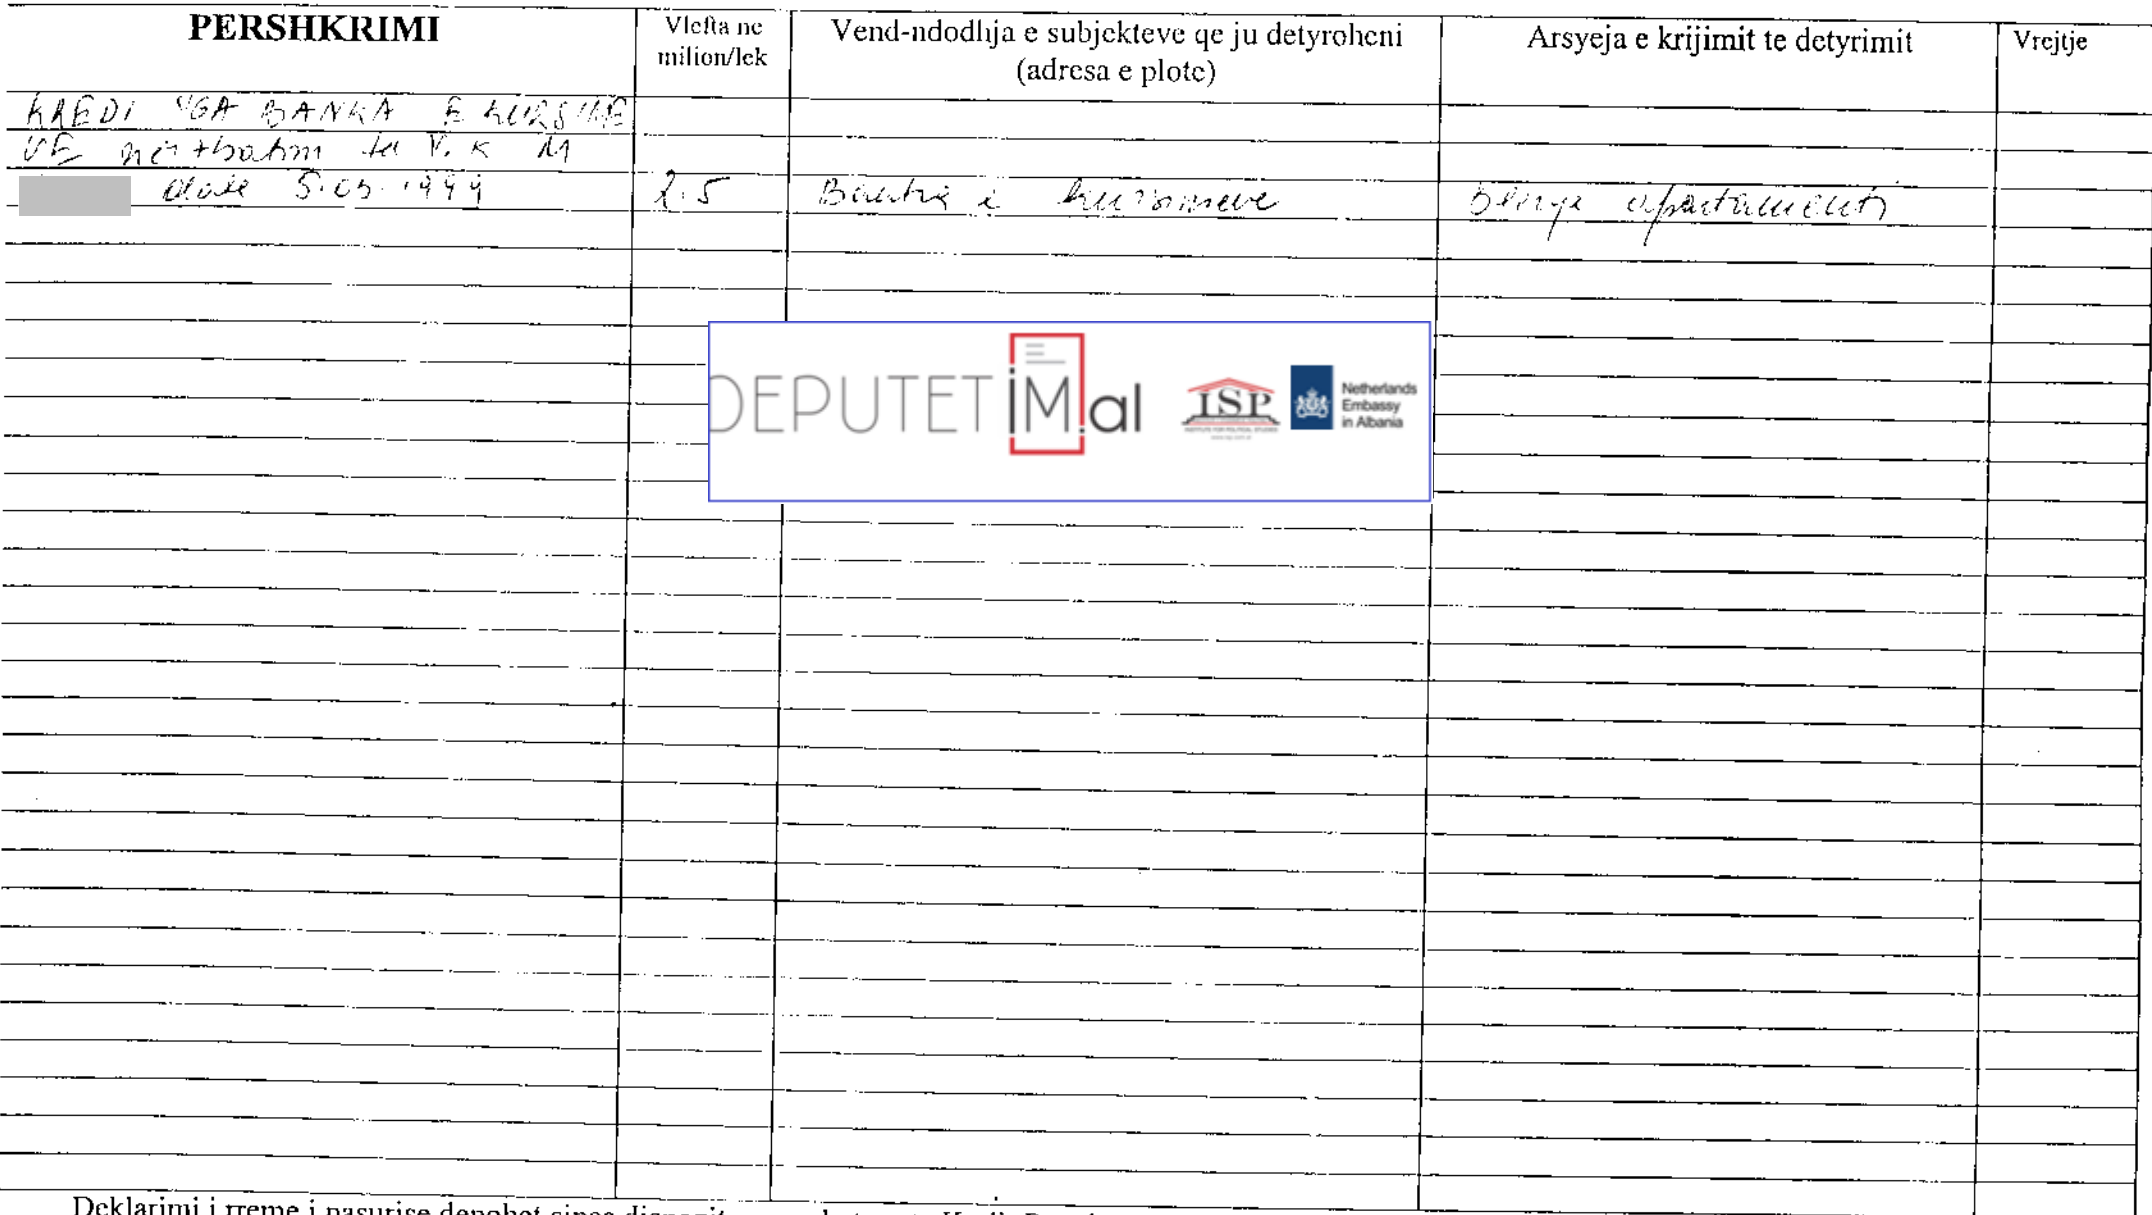 PERSHKRIMI
Vlefta ne
milion/lek
Vend-ndodhja e subjekteve qe ju detyroheni
(adresa e plote)
Arsyeja e krijimit te detyrimit
Vrejtje
KREDI NGA BANKA E KURSIME
VE ne zbatim te V. K M
date 5.03.1999
2.5
Banka e kursimeve
Blerje apartamenti
DEPUTETiM.al
ISP
Netherlands
Embassy
in Albania
Deklarimi i rreme i pasurise denohet sipas